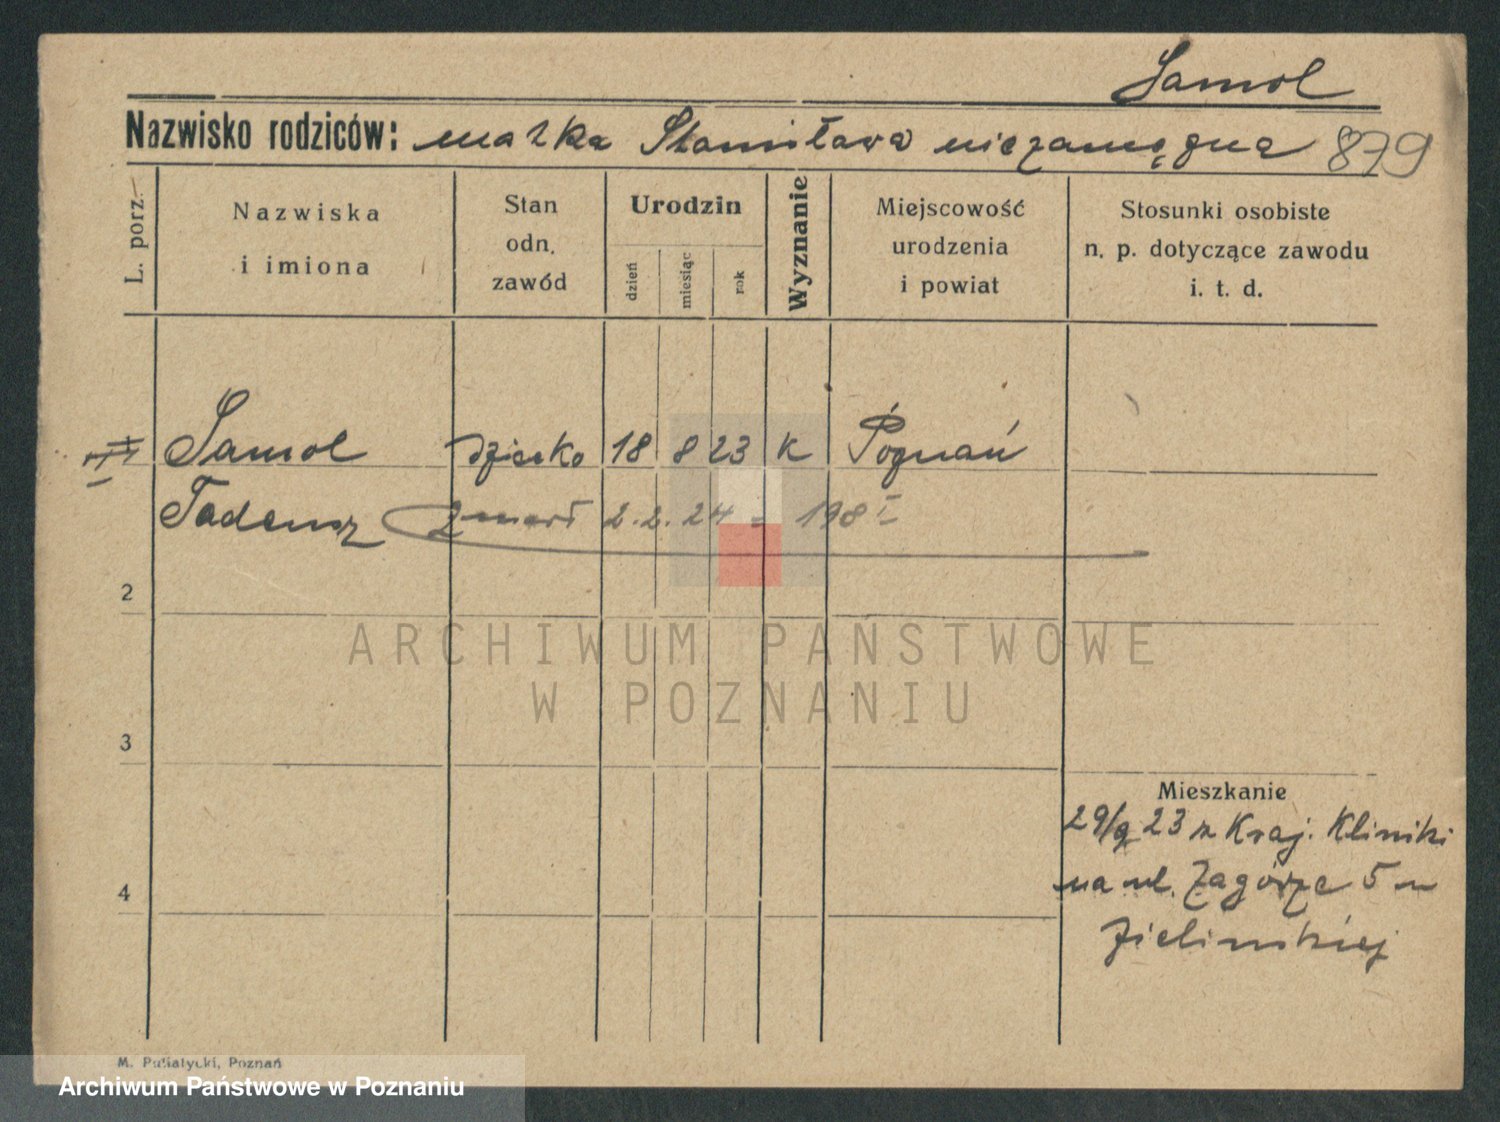 Samol
Nazwisko rodziców: matka Stanisława niezamężna 879
L. porz.
Nazwiska i imiona
Stan odn. zawód
Urodzin
dzień
miesiąc
rok
Wyznanie
Miejscowość urodzenia i powiat
Stosunki osobiste n. p. dotyczące zawodu i. t. d.
Samol dziecko 18 8 23 K Poznań
Tadeusz zmarł 2.2.24 = 198 I
2
ARCHIWUM PAŃSTWOWE
W POZNANIU
3
Mieszkanie
29/9 23 z Kraj. Kliniki
4
na ul. Zagórze 5 u
Zielińskiej
M. Pusiatycki, Poznań
Archiwum Państwowe w Poznaniu